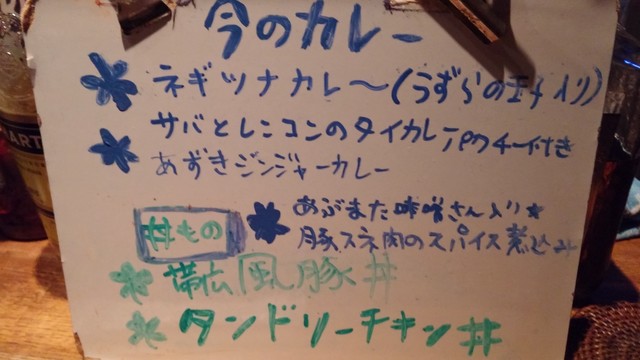 今のカレー
ネギツナカレ～(うずらの玉子入り)
サバとレンコンのタイカレーパクチー付き
あずきジンジャーカレー
あぶまた味噌さん入り★
丼もの
豚スネ肉のスパイス煮込み
帯広風豚丼
タンドリーチキン丼